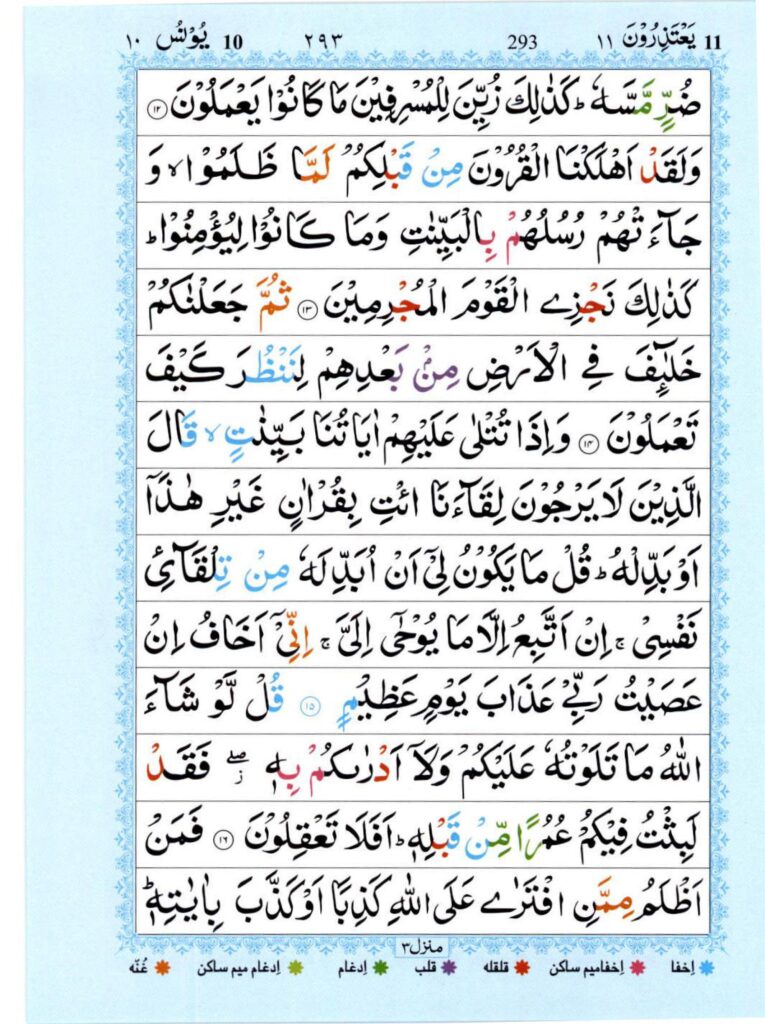 یَعْتَذِرُوْنَ 11 ۱۱ 293 ۲۹۳ 10 یُوْنُس ۱۰
ضُرٍّ مَّسَّهٗ ؕ كَذٰلِكَ زُیِّنَ لِلْمُسْرِفِیْنَ مَا كَانُوْا یَعْمَلُوْنَ ۱۲
وَلَقَدْ اَهْلَكْنَا الْقُرُوْنَ مِنْ قَبْلِكُمْ لَمَّا ظَلَمُوْا ۙ وَ
جَآءَتْهُمْ رُسُلُهُمْ بِالْبَیِّنٰتِ وَمَا كَانُوْا لِیُؤْمِنُوْا ؕ
كَذٰلِكَ نَجْزِی الْقَوْمَ الْمُجْرِمِیْنَ ۱۳ ثُمَّ جَعَلْنٰكُمْ
خَلٰٓىِٕفَ فِی الْاَرْضِ مِنْۢ بَعْدِهِمْ لِنَنْظُرَ كَیْفَ
تَعْمَلُوْنَ ۱۴ وَاِذَا تُتْلٰی عَلَیْهِمْ اٰیَاتُنَا بَیِّنٰتٍ ۙ قَالَ
الَّذِیْنَ لَا یَرْجُوْنَ لِقَآءَنَا ائْتِ بِقُرْاٰنٍ غَیْرِ هٰذَاۤ
اَوْ بَدِّلْهُ ؕ قُلْ مَا یَكُوْنُ لِیْۤ اَنْ اُبَدِّلَهٗ مِنْ تِلْقَآئِ
نَفْسِیْ ۚ اِنْ اَتَّبِعُ اِلَّا مَا یُوْحٰۤی اِلَیَّ ۚ اِنِّیْۤ اَخَافُ اِنْ
عَصَیْتُ رَبِّیْ عَذَابَ یَوْمٍ عَظِیْمٍ ۱۵ قُلْ لَّوْ شَآءَ
اللّٰهُ مَا تَلَوْتُهٗ عَلَیْكُمْ وَلَاۤ اَدْرٰىكُمْ بِهٖ ۖؗ فَقَدْ
لَبِثْتُ فِیْكُمْ عُمُرًا مِّنْ قَبْلِهٖ ؕ اَفَلَا تَعْقِلُوْنَ ۱۶ فَمَنْ
اَظْلَمُ مِمَّنِ افْتَرٰی عَلَی اللّٰهِ كَذِبًا اَوْ كَذَّبَ بِاٰیٰتِهٖ ؕ
منزل ۳
اِخفا اِخفا میم ساکن قلقله قلب اِدغام اِدغام میم ساکن غُنّه